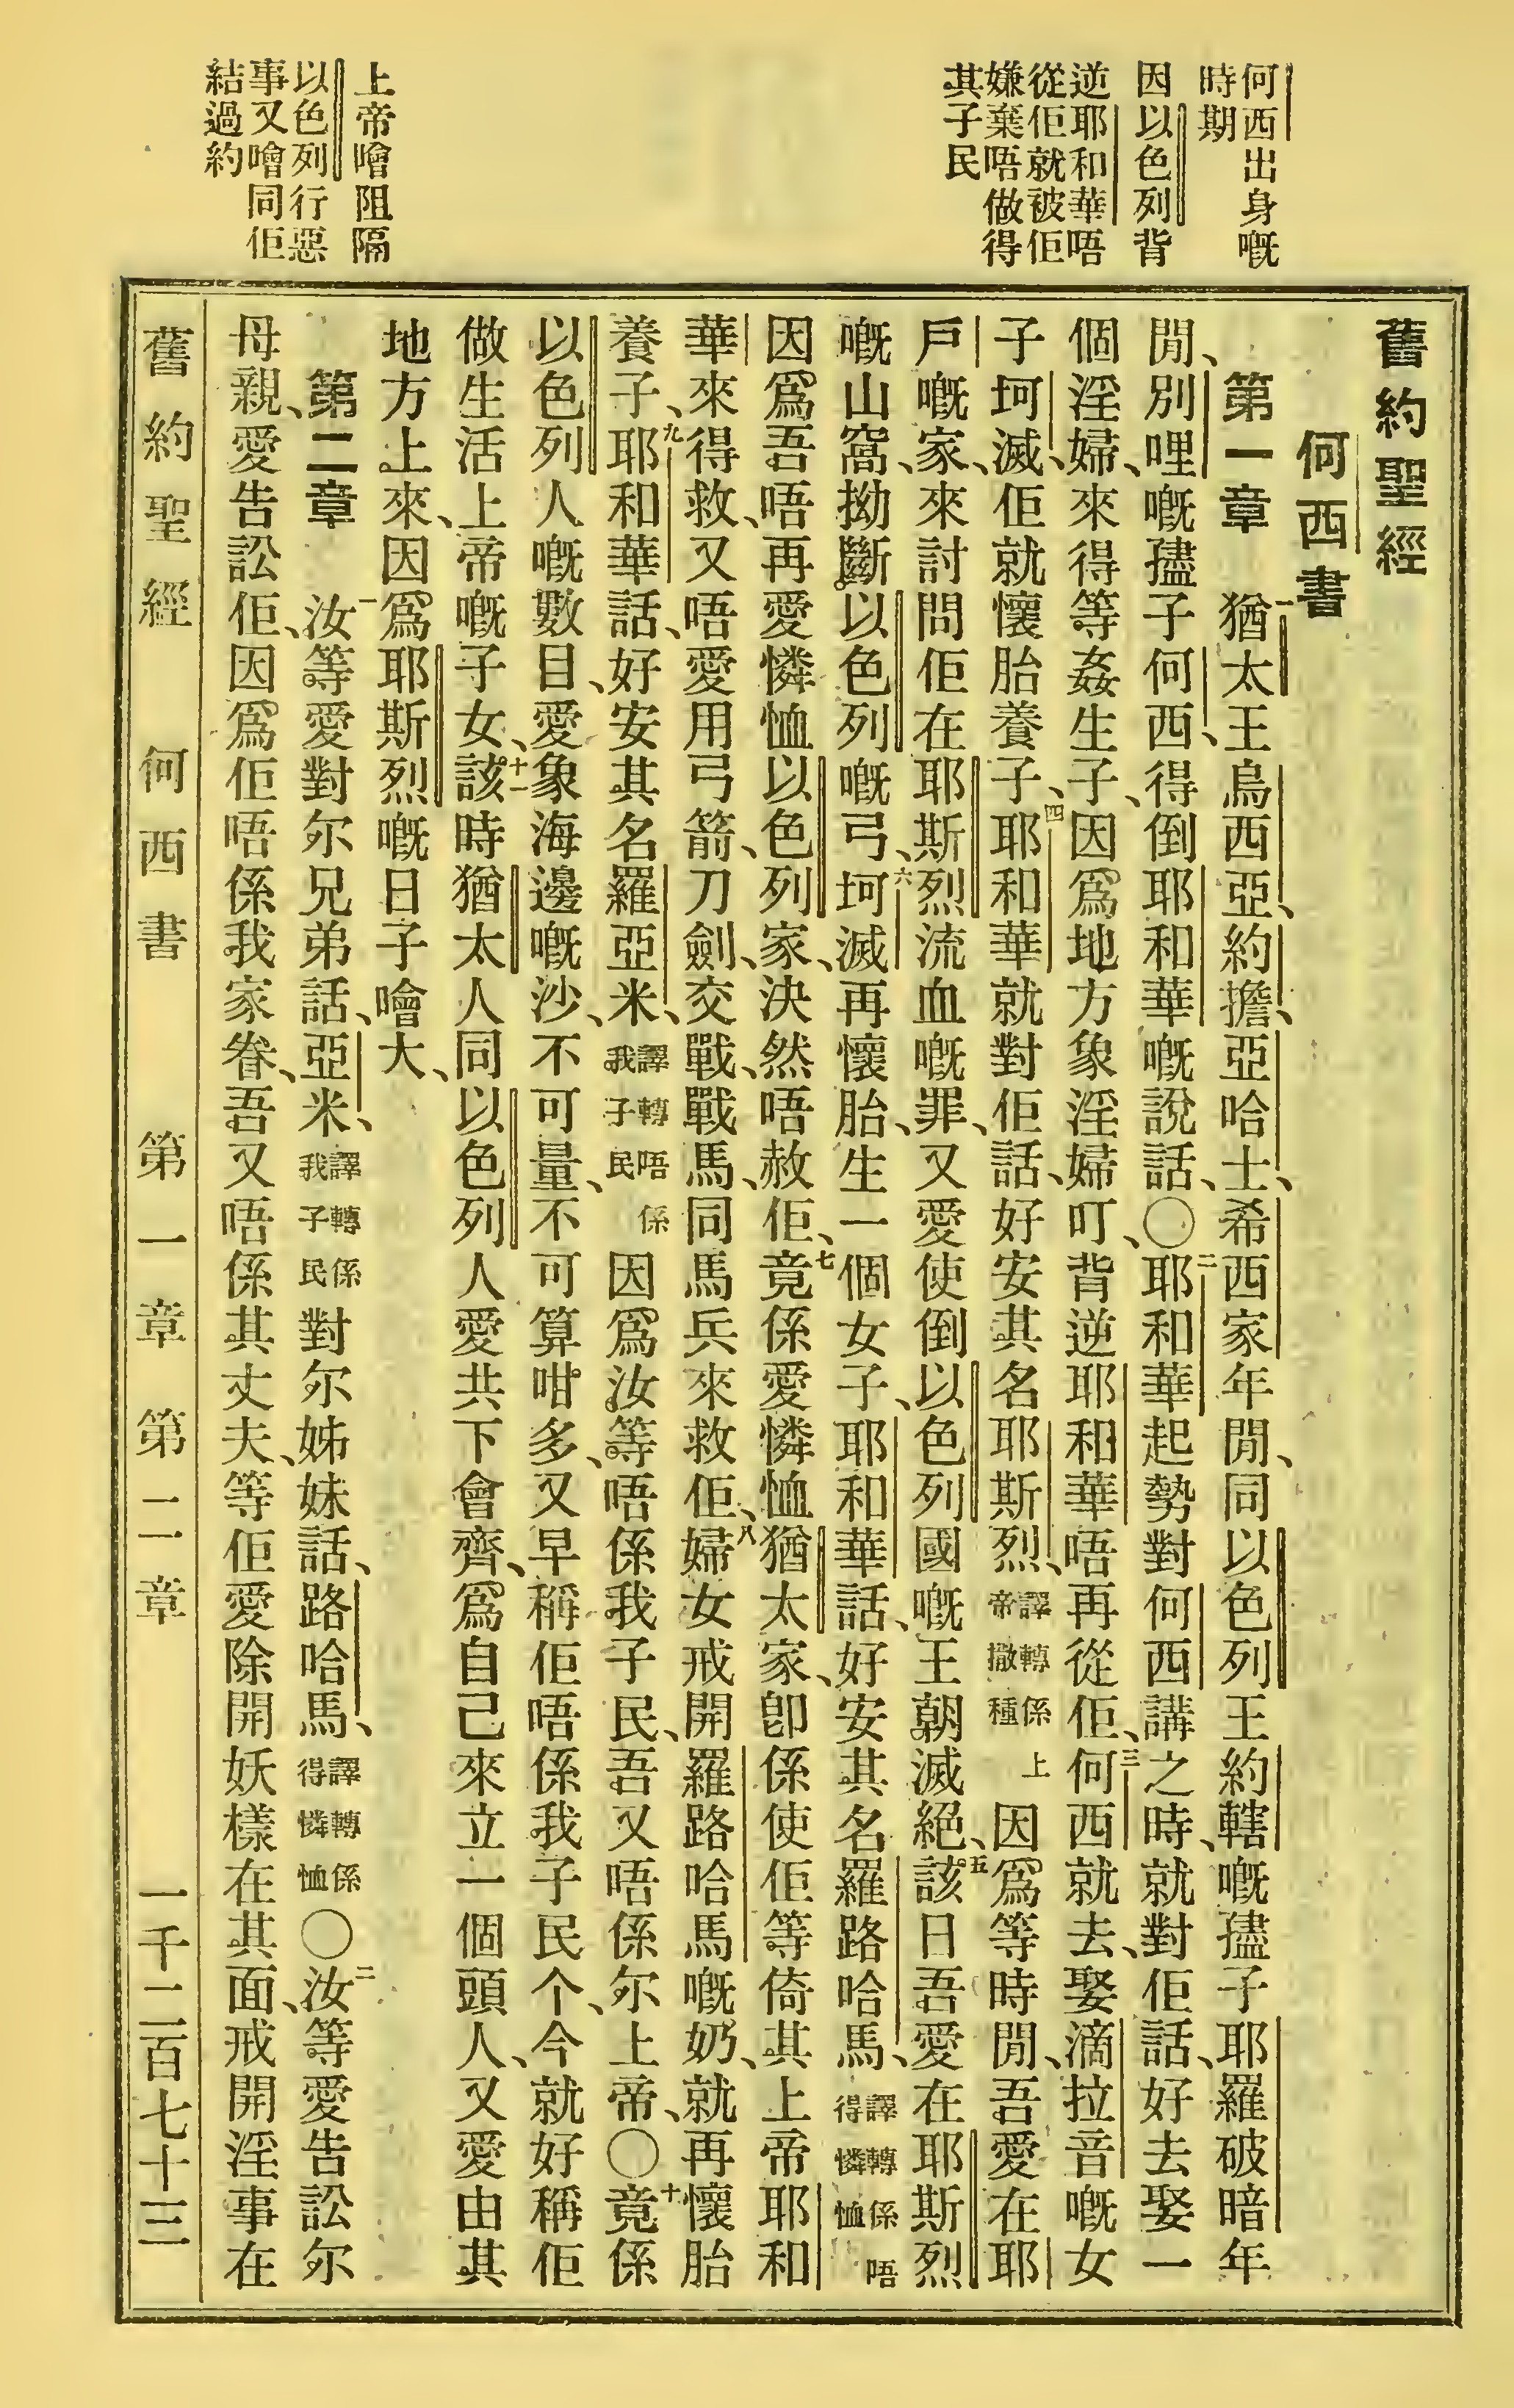 何西出身嘅
時期
因以色列背
逆耶和華唔
從佢就被佢
嫌棄唔做得
其子民
上帝噲阻隔
以色列行惡
事又噲同佢
結過約
舊約聖經
何西書
第一章 一猶太王烏西亞、約擔、亞哈士、希西家年閒、同以色列王約轄嘅孻子耶羅破暗年
閒、別哩嘅孻子何西、得倒耶和華嘅說話、〇二耶和華起勢對何西講之時、就對佢話、好去娶一
個淫婦、來得等姦生子、因爲地方象淫婦叮、背逆耶和華唔再從佢、三何西就去、娶滴拉音嘅女
子坷滅、佢就懷胎養子、四耶和華就對佢話、好安其名耶斯烈、譯轉係上帝撒種因爲等時閒、吾愛在耶
戶嘅家、來討問佢在耶斯烈流血嘅罪、又愛使倒以色列國嘅王朝滅絕、五該日吾愛在耶斯烈
嘅山窩、拗斷以色列嘅弓、六坷滅再懷胎、生一個女子、耶和華話、好安其名羅路哈馬、譯轉係唔得憐恤
因爲吾唔再愛憐恤以色列家、決然唔赦佢、七竟係愛憐恤猶太家、卽係使佢等倚其上帝耶和
華來得救、又唔愛用弓箭、刀劍、交戰、戰馬、同馬兵來救佢、八婦女戒開羅路哈馬嘅奶、就再懷胎
養子、九耶和華話、好安其名羅亞米、譯轉唔係我子民因爲汝等、唔係我子民、吾又唔係尔上帝、〇十竟係
以色列人嘅數目、愛象海邊嘅沙、不可量、不可算咁多、又早稱佢唔係我子民个、今就好稱佢
做生活上帝嘅子女、十一該時猶太人同以色列人愛共下會齊、爲自己來立一個頭人、又愛由其
地方上來、因爲耶斯烈嘅日子噲大、
第二章 一汝等愛對尔兄弟話、亞米、譯轉係我子民對尔姊妹話、路哈馬、譯轉係得憐恤〇二汝等愛告訟尔
母親、愛告訟佢、因爲佢唔係我家眷、吾又唔係其丈夫、等佢愛除開妖樣在其面、戒開淫事在
舊約聖經 何西書 第一章 第二章 一千二百七十三